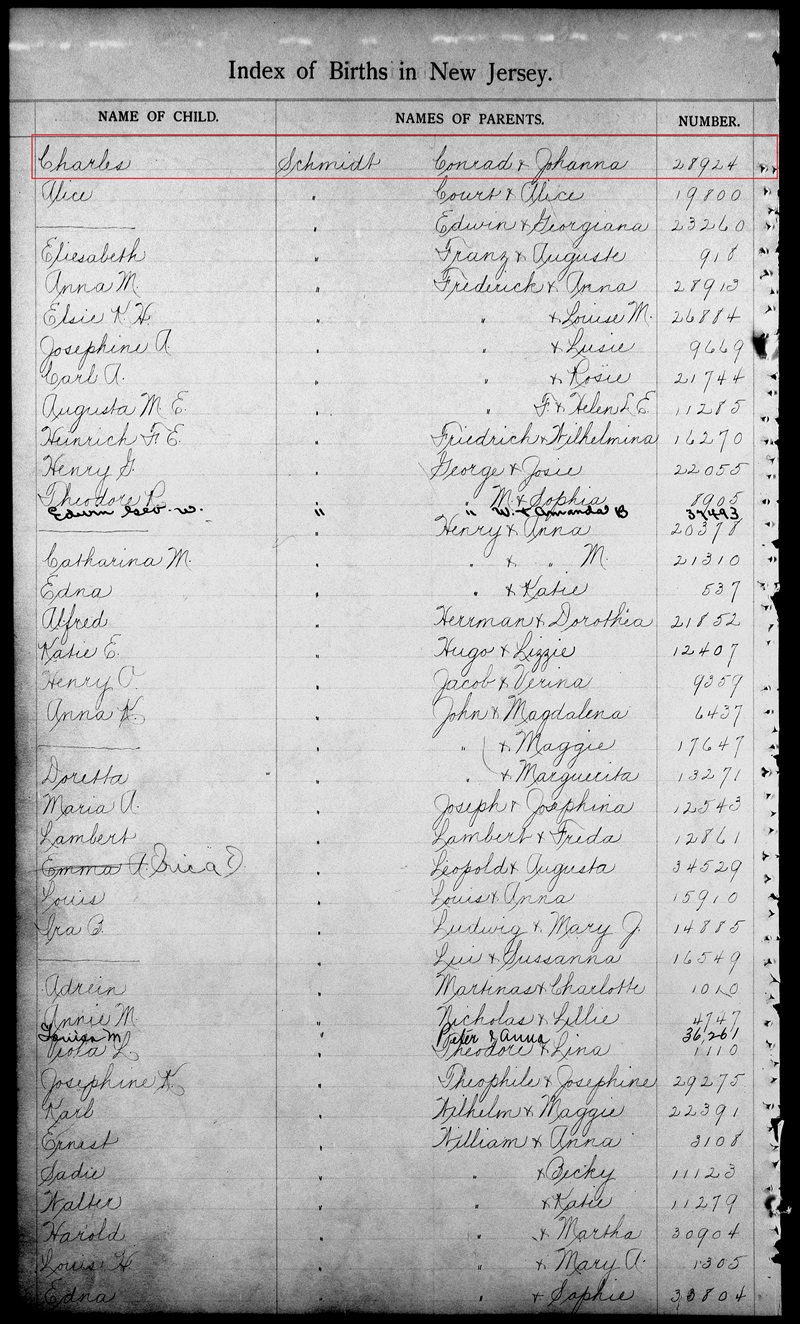 Index of Births in New Jersey.
NAME OF CHILD. NAMES OF PARENTS. NUMBER.
Charles Schmidt Conrad & Johanna 28924
Alice " Court & Alice 19800
" Edwin & Georgiana 23260
Eliesabeth " Franz & Auguste 918
Anna M. " Frederick & Anna 28913
Elsie K. H. " " & Louise M. 26884
Josephine A. " " & Lusie 9669
Carl A. " " & Rosie 21744
Augusta M. E. " " F. & Helen L. E. 11285
Heinrich F. E. " Friedrich & Wilhelmina 16270
Henry G. " George & Josie 22055
Theodore P. " " M. & Sophia 8905
Edwin Geo. W. " " W. & Amanda B 37493
" Henry & Anna 20378
Catharina M. " " & " M. 21310
Edna " " & Katie 537
Alfred " Herrman & Dorothea 21852
Katie E. " Hugo & Lizzie 12407
Henry O. " Jacob & Verina 9359
Anna K. " John & Magdalena 6437
" " & Maggie 17647
Doretta " " & Marguerita 13271
Maria A. " Joseph & Josephina 12543
Lambert " Lambert & Freda 12861
Emma A. " Leopold & Augusta 34529
Louis " Louis & Anna 15910
Ira B. " Ludwig & Mary J. 14885
" Lui & Sussanna 16549
Adrein " Martinas & Charlotte 1010
Annie M. " Nicholas & Lillie 4747
Louisa M " Peter & Anna 36,261
Viola L. Theodore & Lina 1110
Josephine K. " Theophile & Josephine 29275
Karl " Wilhelm & Maggie 22391
Ernest " William & Anna 3108
Sadie " " & Becky 11123
Walter " " & Katie 11279
Harold " " & Martha 30904
Louis H. " " & Mary A. 1305
Edna " " & Sophie 33804